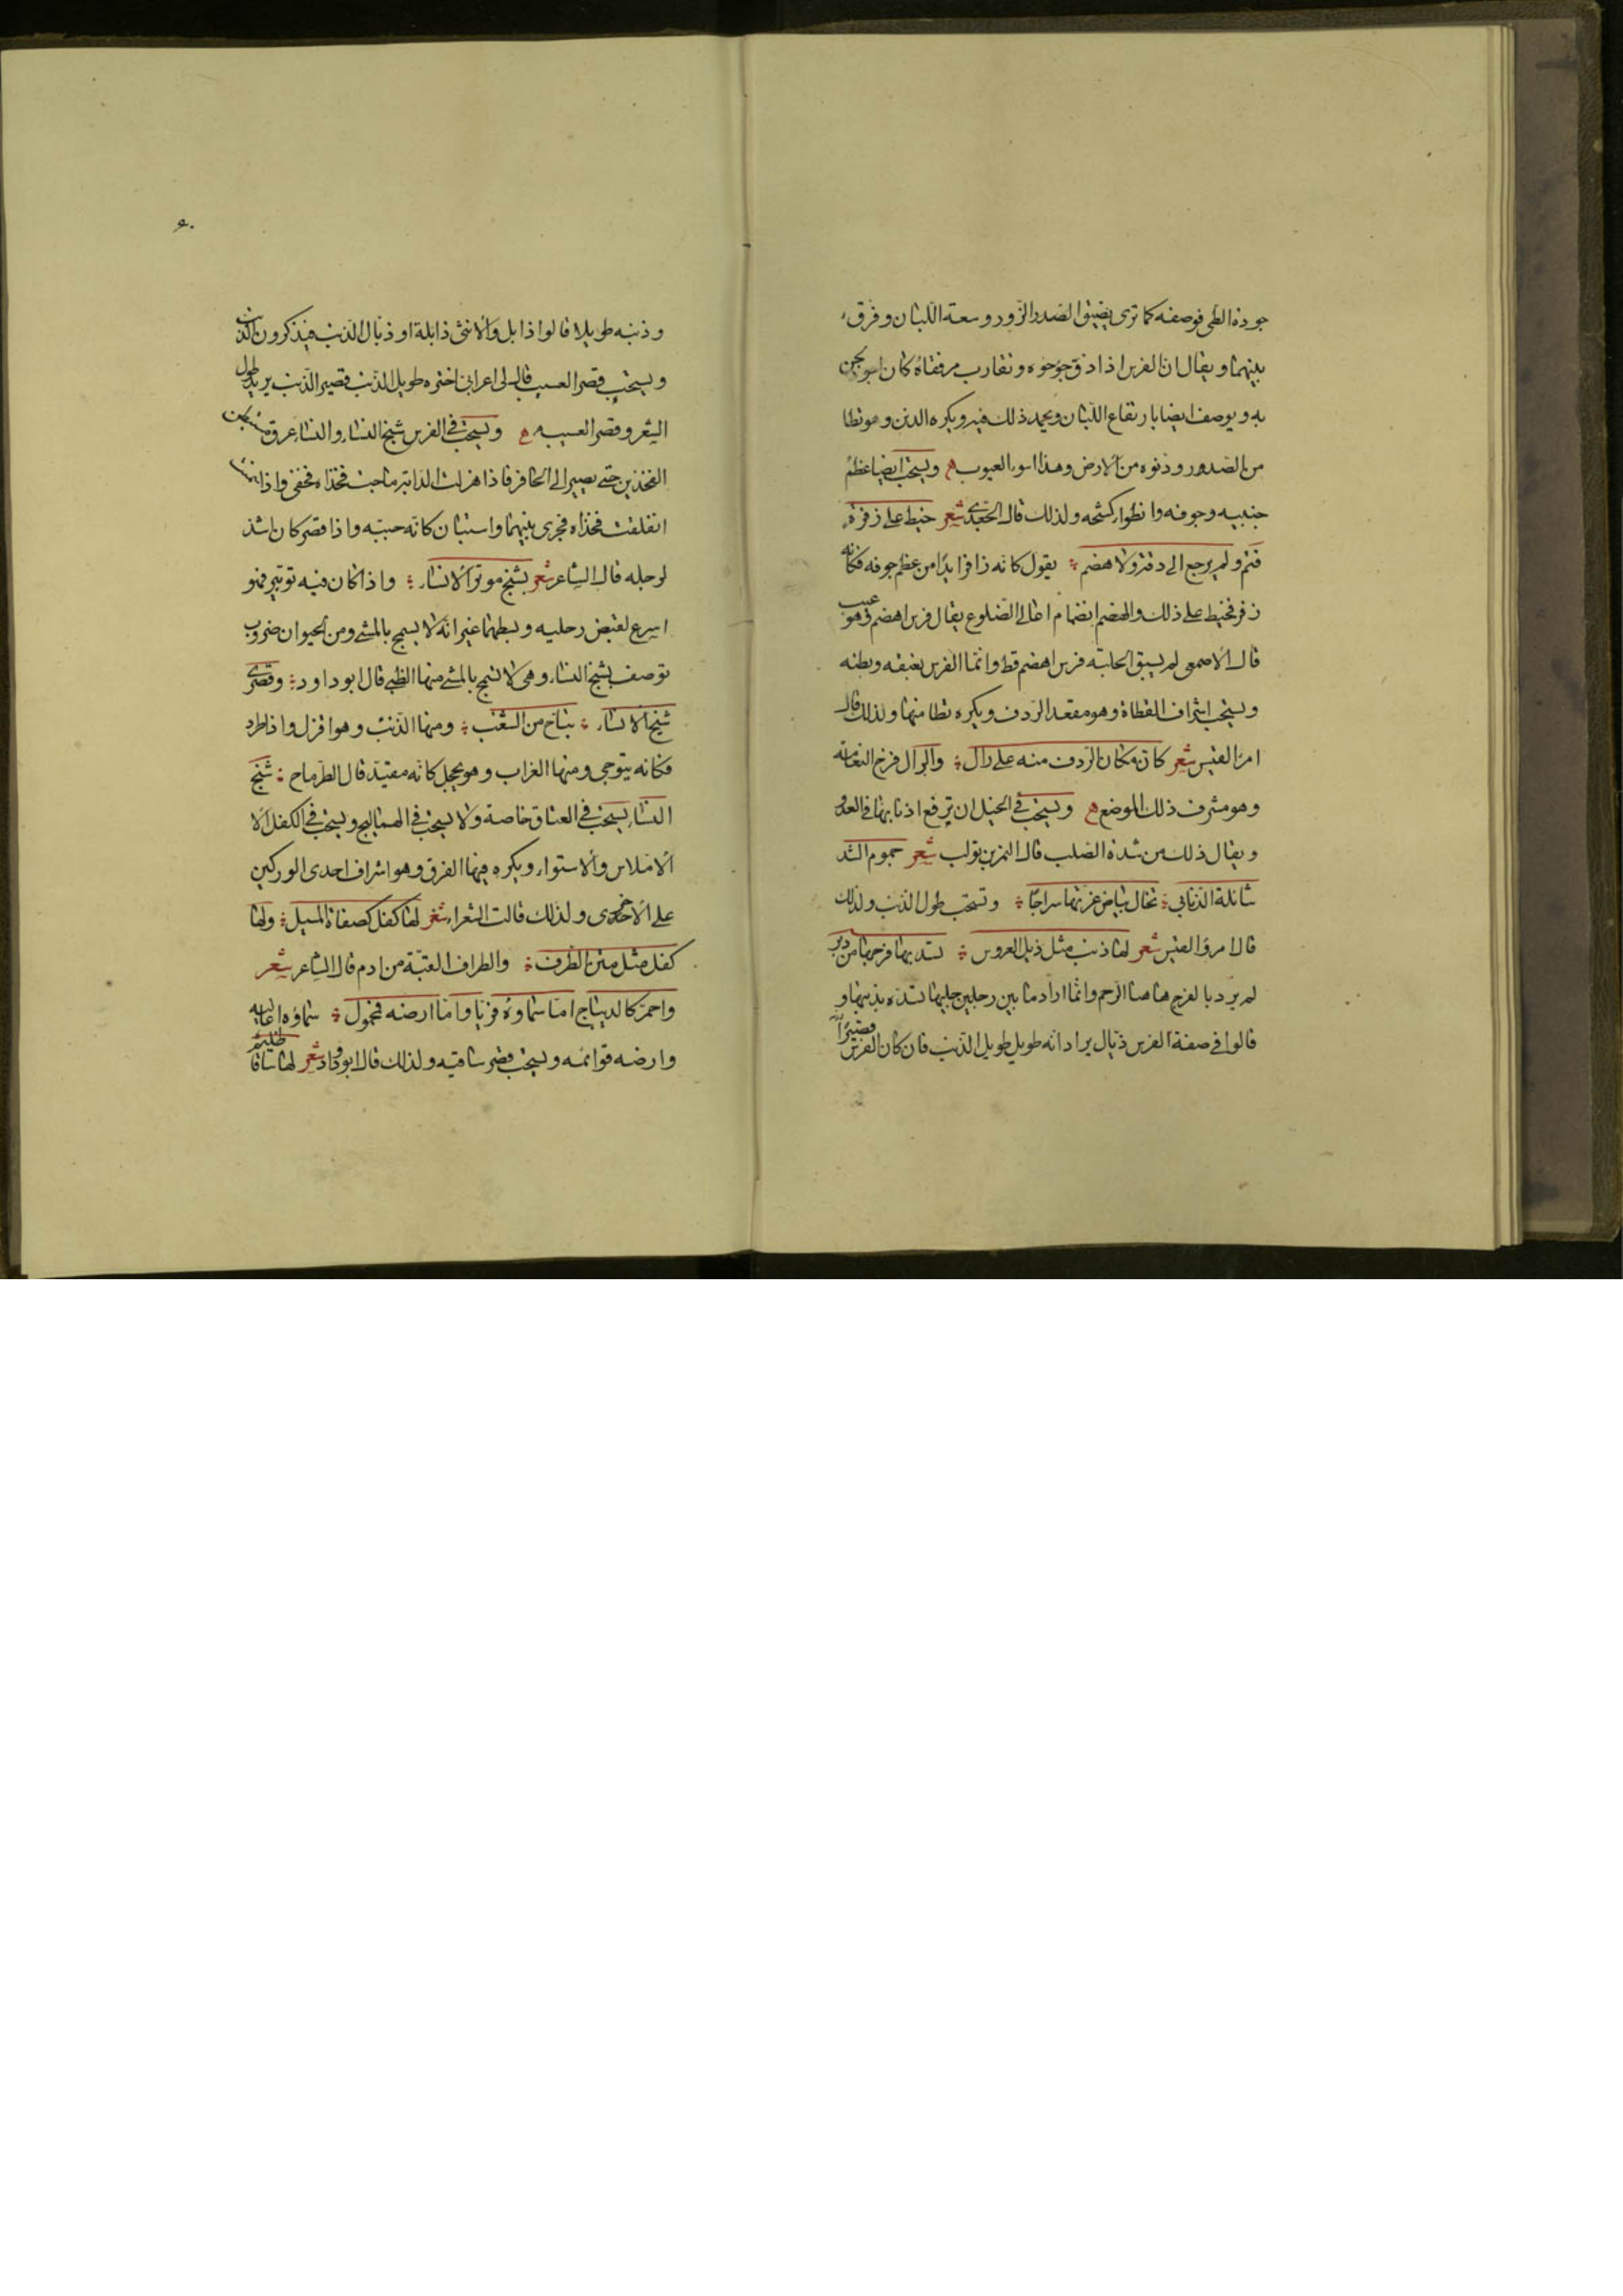 جودة الطى فوصفه كما ترى بضيق الصدر الزور وسعة اللبان وفرق
بينهما ويقال ان الفرس اذا دق جؤجؤه وتقارب مرفقاه كان اجود لجريه
به ويوصف ايضا بارتفاع اللبان ويحمد ذلك فيه ويكره الدنن وهو تطا
من الصدور ودنوه من الارض وهذا اسوء العيوب ويستحب ايضا عظم
جنبيه وجوفه وانطواء كشحه ولذلك قال الجعدى شعر خيط على زفرة
فتم ولم يرجع الى دقة ولا هضم يقول كانه زافر ابدًا من عظم جوفه فكانه
زفر فخيط على ذلك والهضم انضمام اعالى الضلوع يقال فرس اهضم وهو عيب
قال الاصمعى لم يسبق الحلبة فرس اهضم قط وانما الفرس بعنقه وبطنه
ويستحب اشراف القطاة وهو مقعد الردف ويكره تطامنها ولذلك قال
امرء القيس شعر كان مكان الردف منه على رال والرال فرخ النعامة
وهو مشرف ذلك الموضع ويستحب فى الخيل ان ترفع اذنابها فى العدو
ويقال ذلك من شدة الصلب قال النمر بن تولب شعر جموم الشد
شائلة الذنابى تخال بياض غرتها سراجًا وتستحب طول الذنب ولذلك
قال امرؤ القيس شعر لها ذنب مثل ذيل العروس تسد بها فرجها من دبر
لم يرد بالفرج هاهنا الرحم وانما اراد ما بين رجليها تسده بذنبها و
قالوا فى صفة الفرس ذيال يراد انه طويل طويل الذنب فان كان الفرس قصيرًا
وذنبه طويلا قالوا ذابل والانثى ذابلة او ذيال الذنب فيذكرون الذنب
ويستحب قصر العسيب قال لى اعرابى اختره طويل الذنب قصير الذنب يريد طول
الشعر وقصر العسيب ويستحب فى الفرس شنج النساء والنساء عرق مستبطن
الفخذين حتى يصير الى الحافر فاذا هزلت الدابة ماجت فخذاه فخفى واذا سمنت
انفلقت فخذاه فجرى بينهما واستبان كانه حية واذا قصر كان اشد
لرجله قال الشاعر شعر بشنج موتر الانساء واذا كان فيه توتير فهو
اسرع لقبض رجليه وبسطهما غير انه لا يسمح بالمشى ومن الحيوان ضروب
توصف بشنج النساء وهى لا تسمح بالمشى منها الظبى قال ابو داود وقصرى
شنج الانساء نباح من الشعب ومنها الذئب وهو اقزل واذا طرد
فكانه يتوجى ومنها الغراب وهو يحجل كانه مقيد قال الطرماح شنج
النساء يستحب فى العتاق خاصة ولا يستحب فى الهماليج ويستحب فى الكفل الا
الاملاس والاستواء ويكره فيها الفرق وهو اشراف احدى الوركين
على الاخرى ولذلك قالت الشعراء شعر لها كفل كصفاة المسيل ولها
كفل مثل متن الطرف والطراف القبة من ادم قال الشاعر شعر
واحمر كالديباج اما سماؤه فريا واما ارضه فمحول سماؤه اعاليه
وارضه قوائمه ويستحب قصر ساقيه ولذلك قال ابو داود شعر لها ساقا ظليم